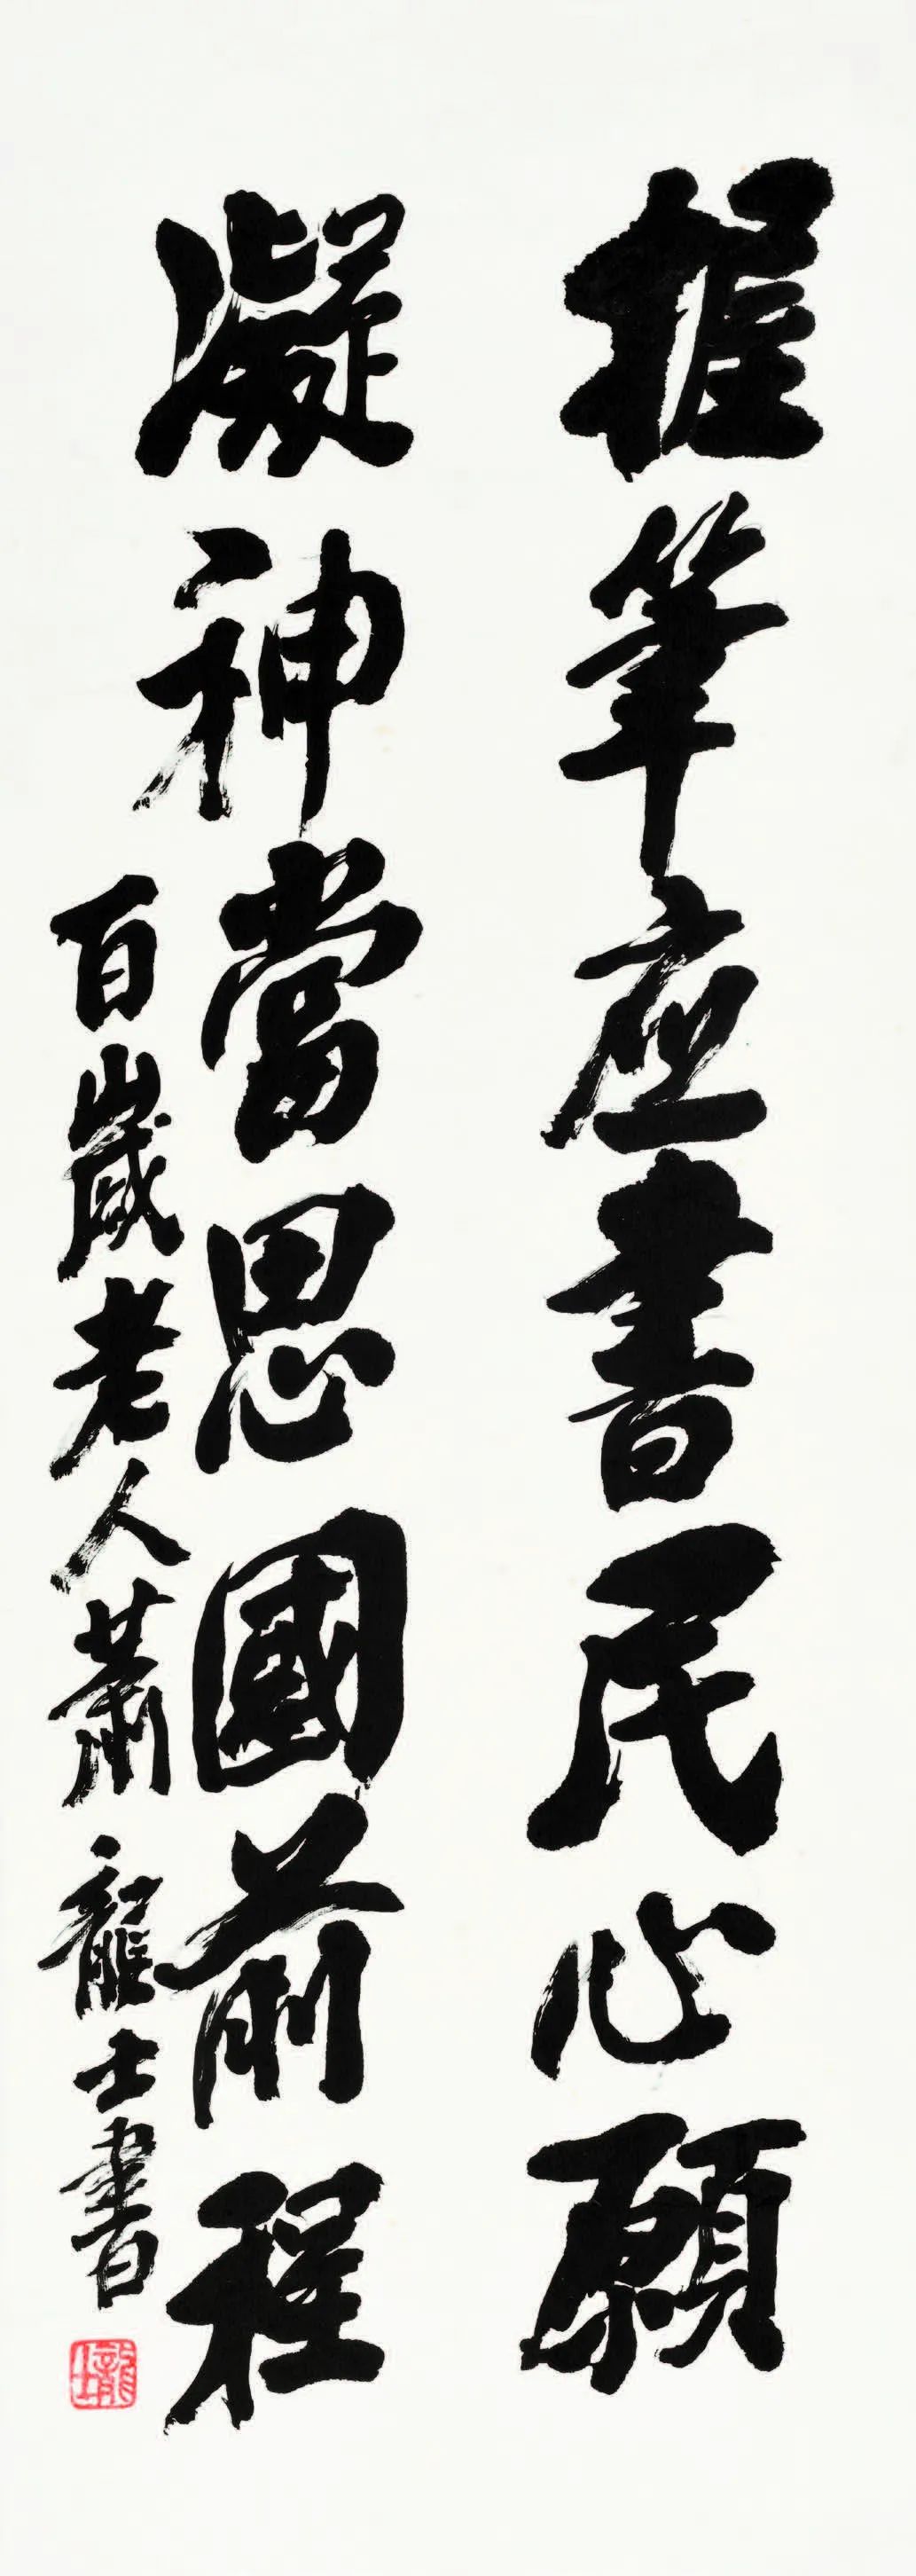 握筆应書民心願
凝神當思國前程
百歲老人蕭龍士書
龍士